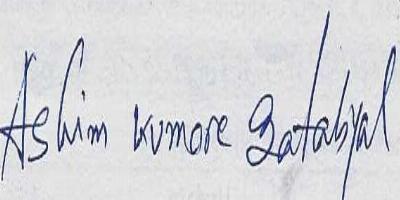 Ashim kumore Batabyal